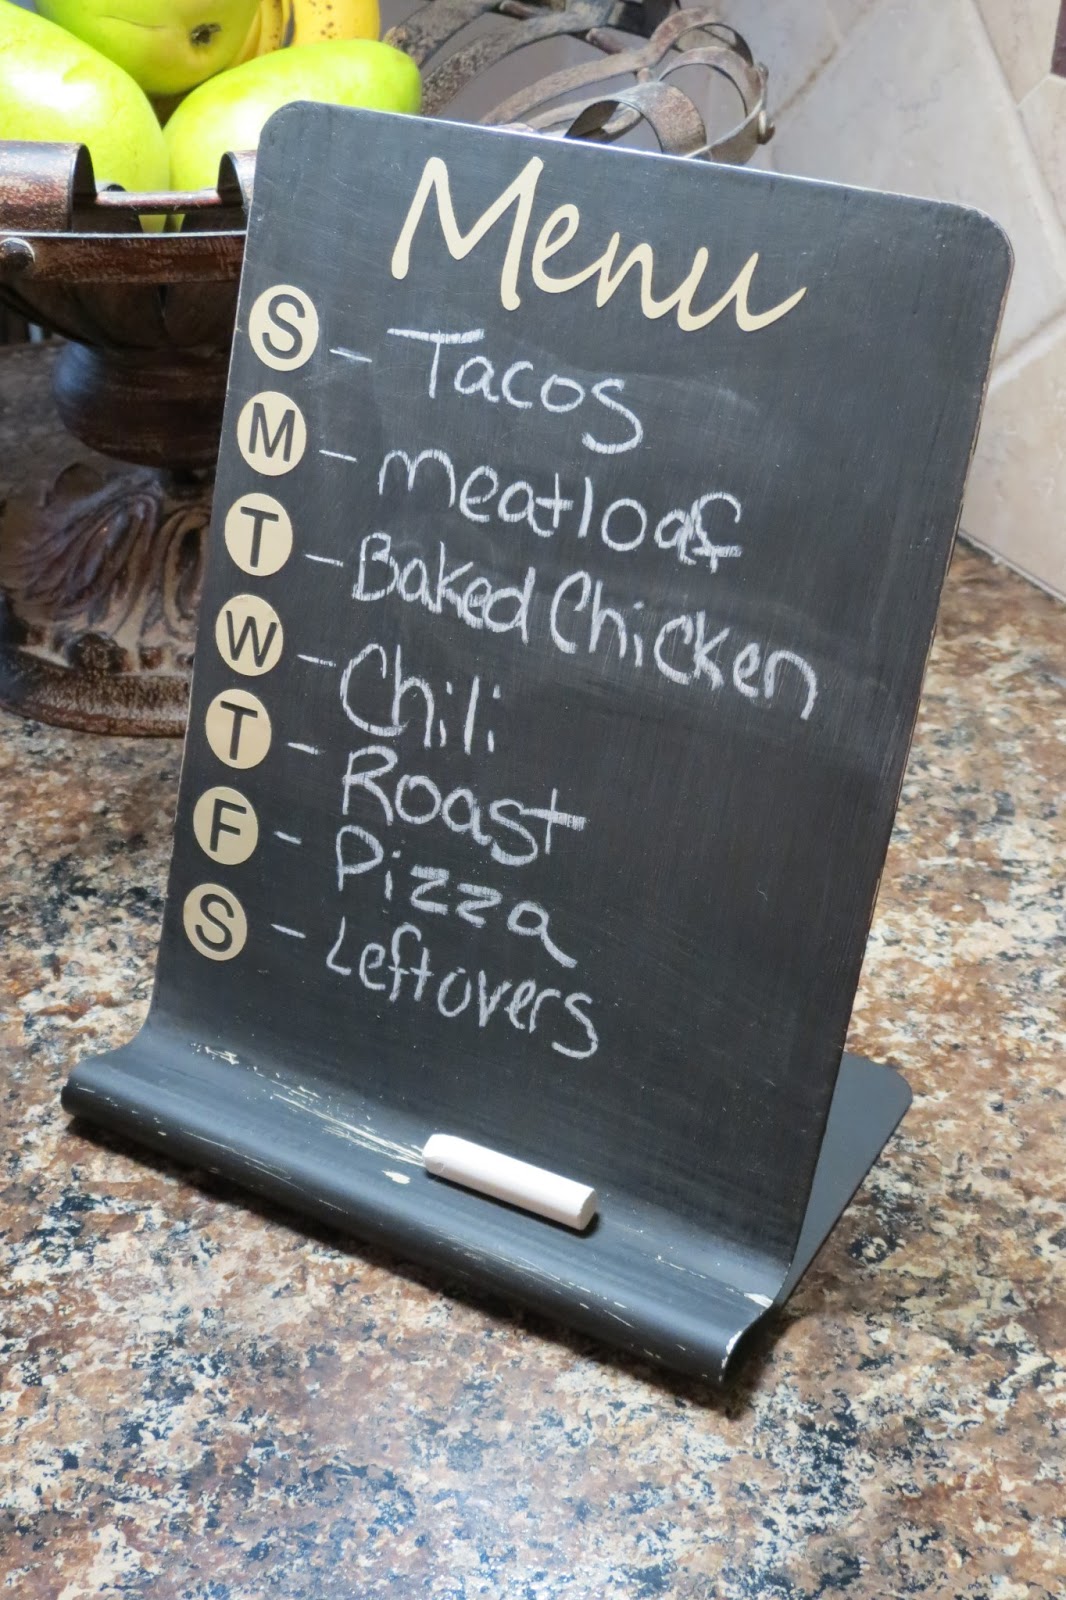 Menu
S - Tacos
M - meatloaf
T - Baked Chicken
W - Chili
T - Roast
F - Pizza
S - Leftovers